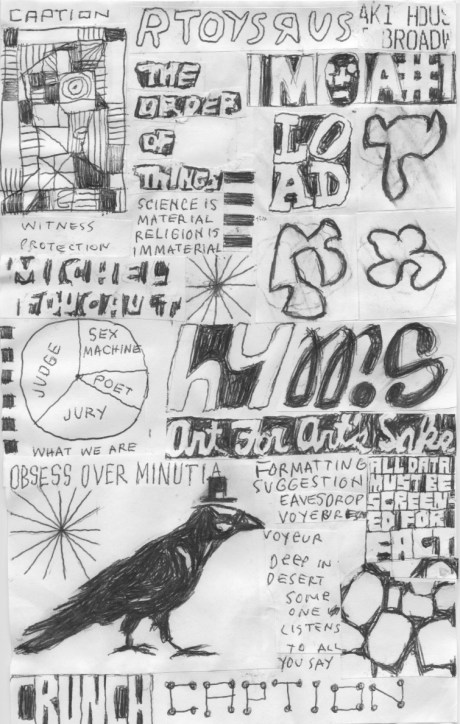 CAPTION
RTOYSRUS
AKI HOUS
BROADW
THE
ORDER
OF
THINGS
LO
AD
SCIENCE IS
MATERIAL
RELIGION IS
IMMATERIAL
WITNESS
PROTECTION
MICHEL
FOUCAULT
JUDGE
SEX
MACHINE
POET
JURY
WHAT WE ARE
HYMNS
Art For Art's Sake
OBSESS OVER MINUTIA
FORMATTING
SUGGESTION
EAVESDROP
VOYEUR
VOYEUR
DEEP IN
DESERT
SOME
ONE
LISTENS
TO ALL
YOU SAY
ALL DATA
MUST BE
SCREEN-
ED FOR
CRUNCH
CAPTION